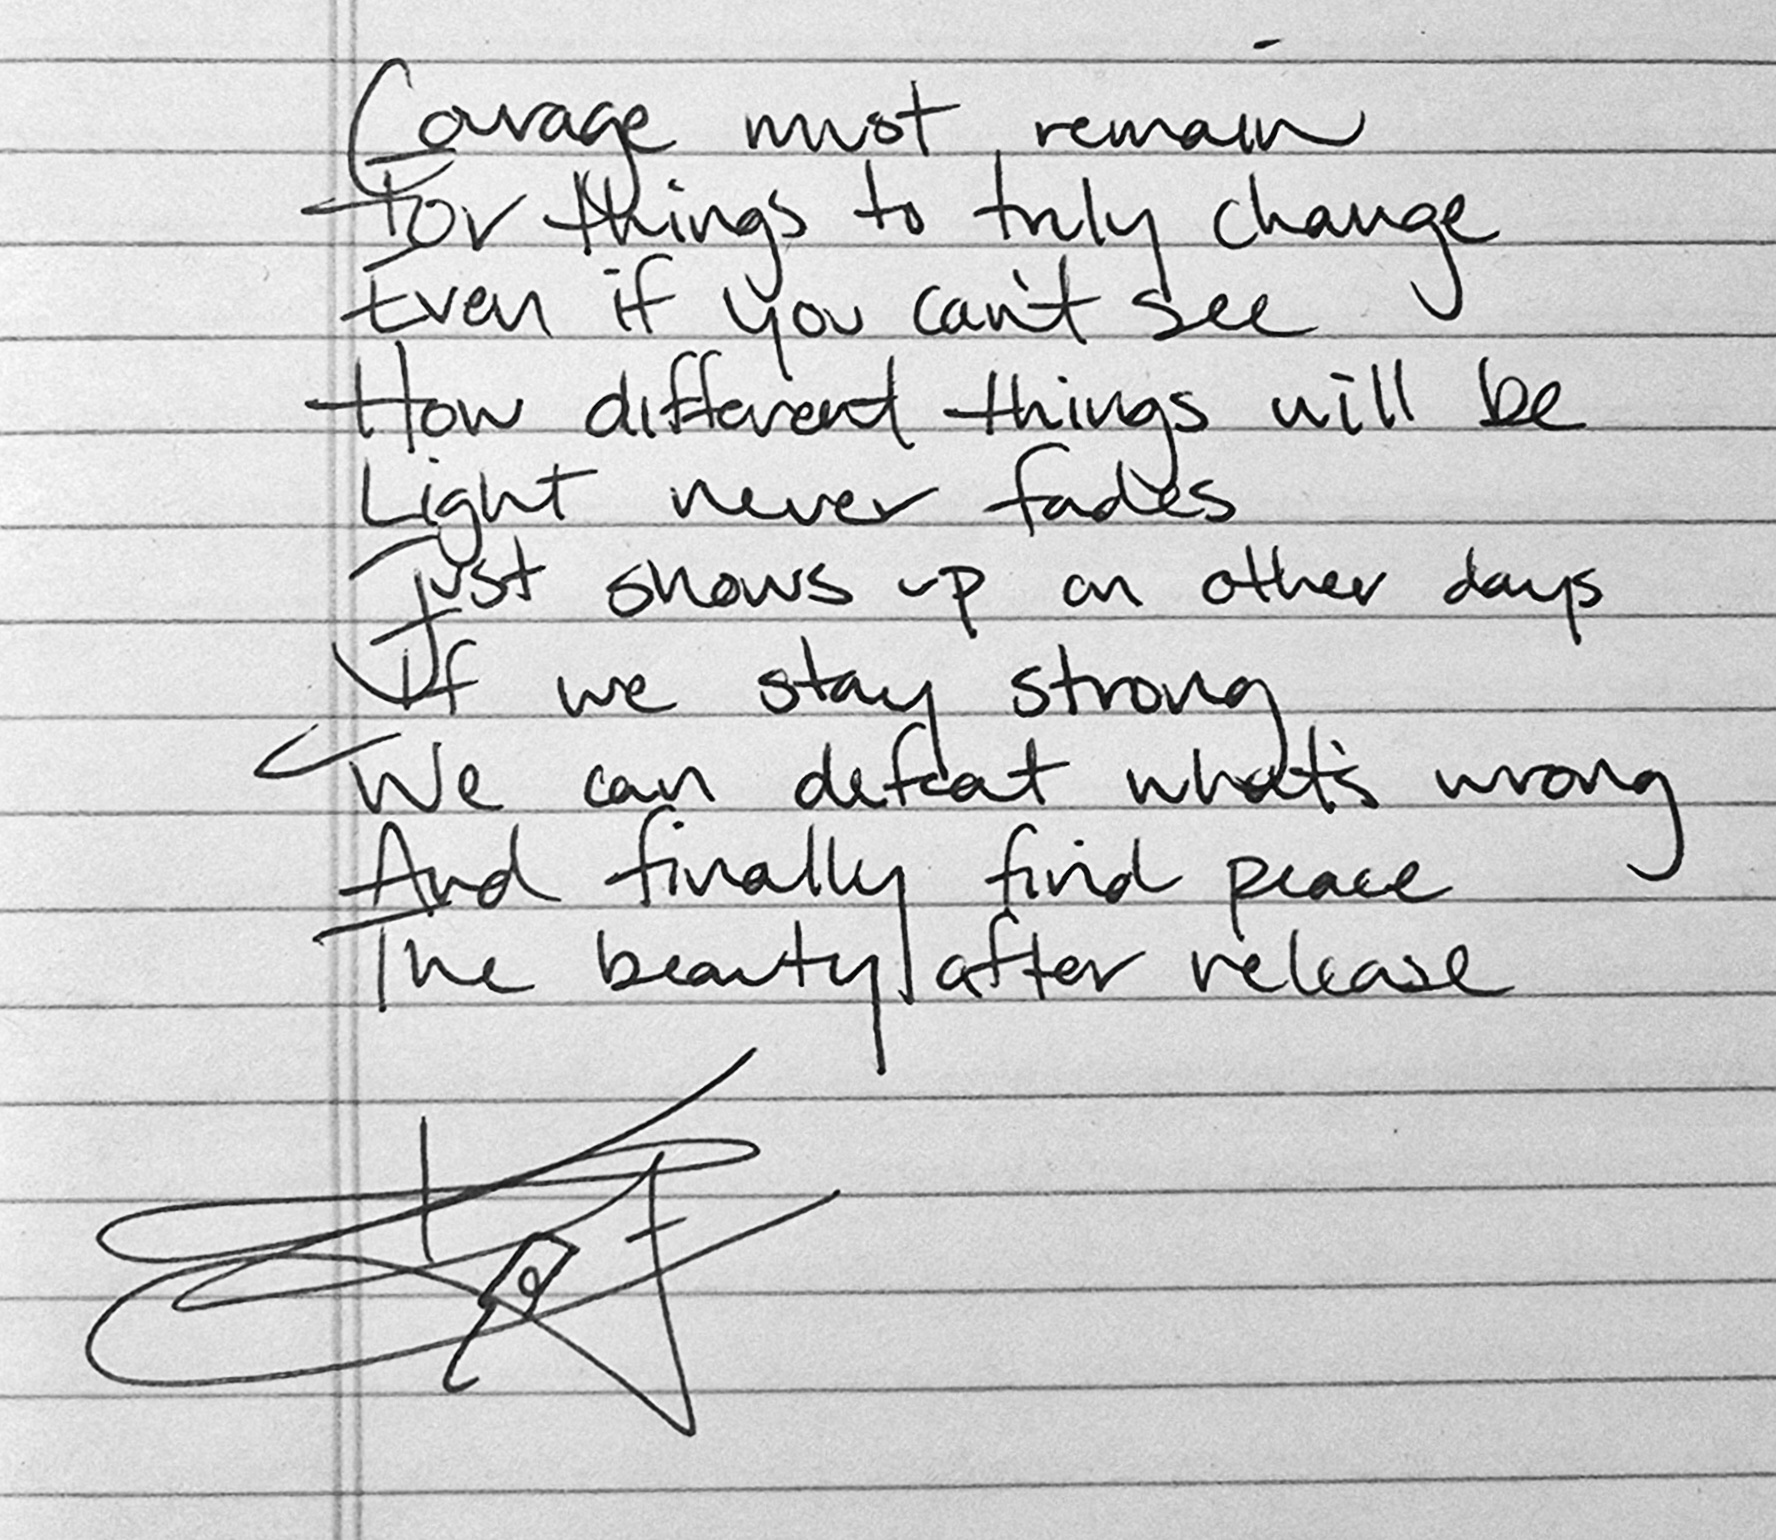 Courage must remain
For things to truly change
Even if you can't see
How different things will be
Light never fades
Just shows up on other days
If we stay strong
We can defeat what's wrong
And finally find peace
The beauty after release